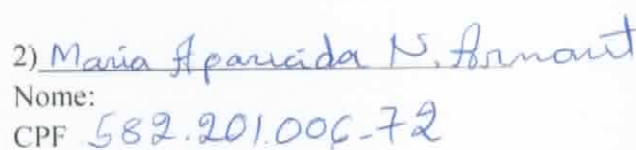 2) Maria Aparecida N. Arnaut
Nome:
CPF 582.201.006-72